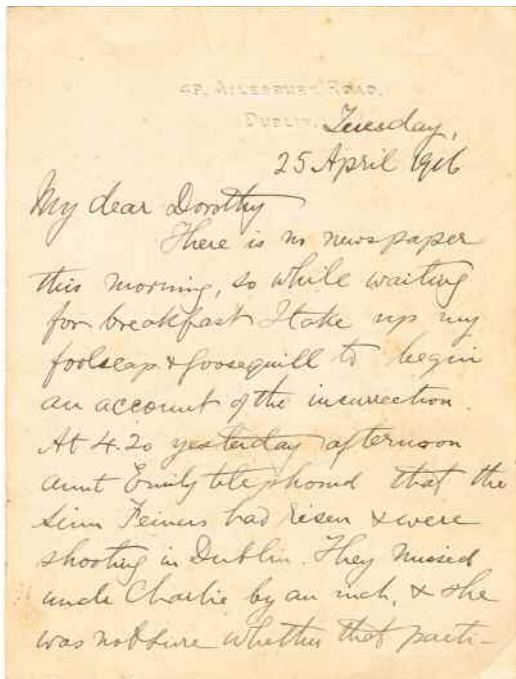 48, AILESBURY ROAD,
DUBLIN.
Tuesday,
25 April 1916
My dear Dorothy
There is no newspaper
this morning, so while waiting
for breakfast I take up my
foolscap & goosequill to begin
an account of the incurrection.
At 4.20 yesterday afternoon
aunt Emily telephoned that the
Sinn Feiners had risen & were
shooting in Dublin. They missed
uncle Charlie by an inch, & she
was not sure whether that parti-